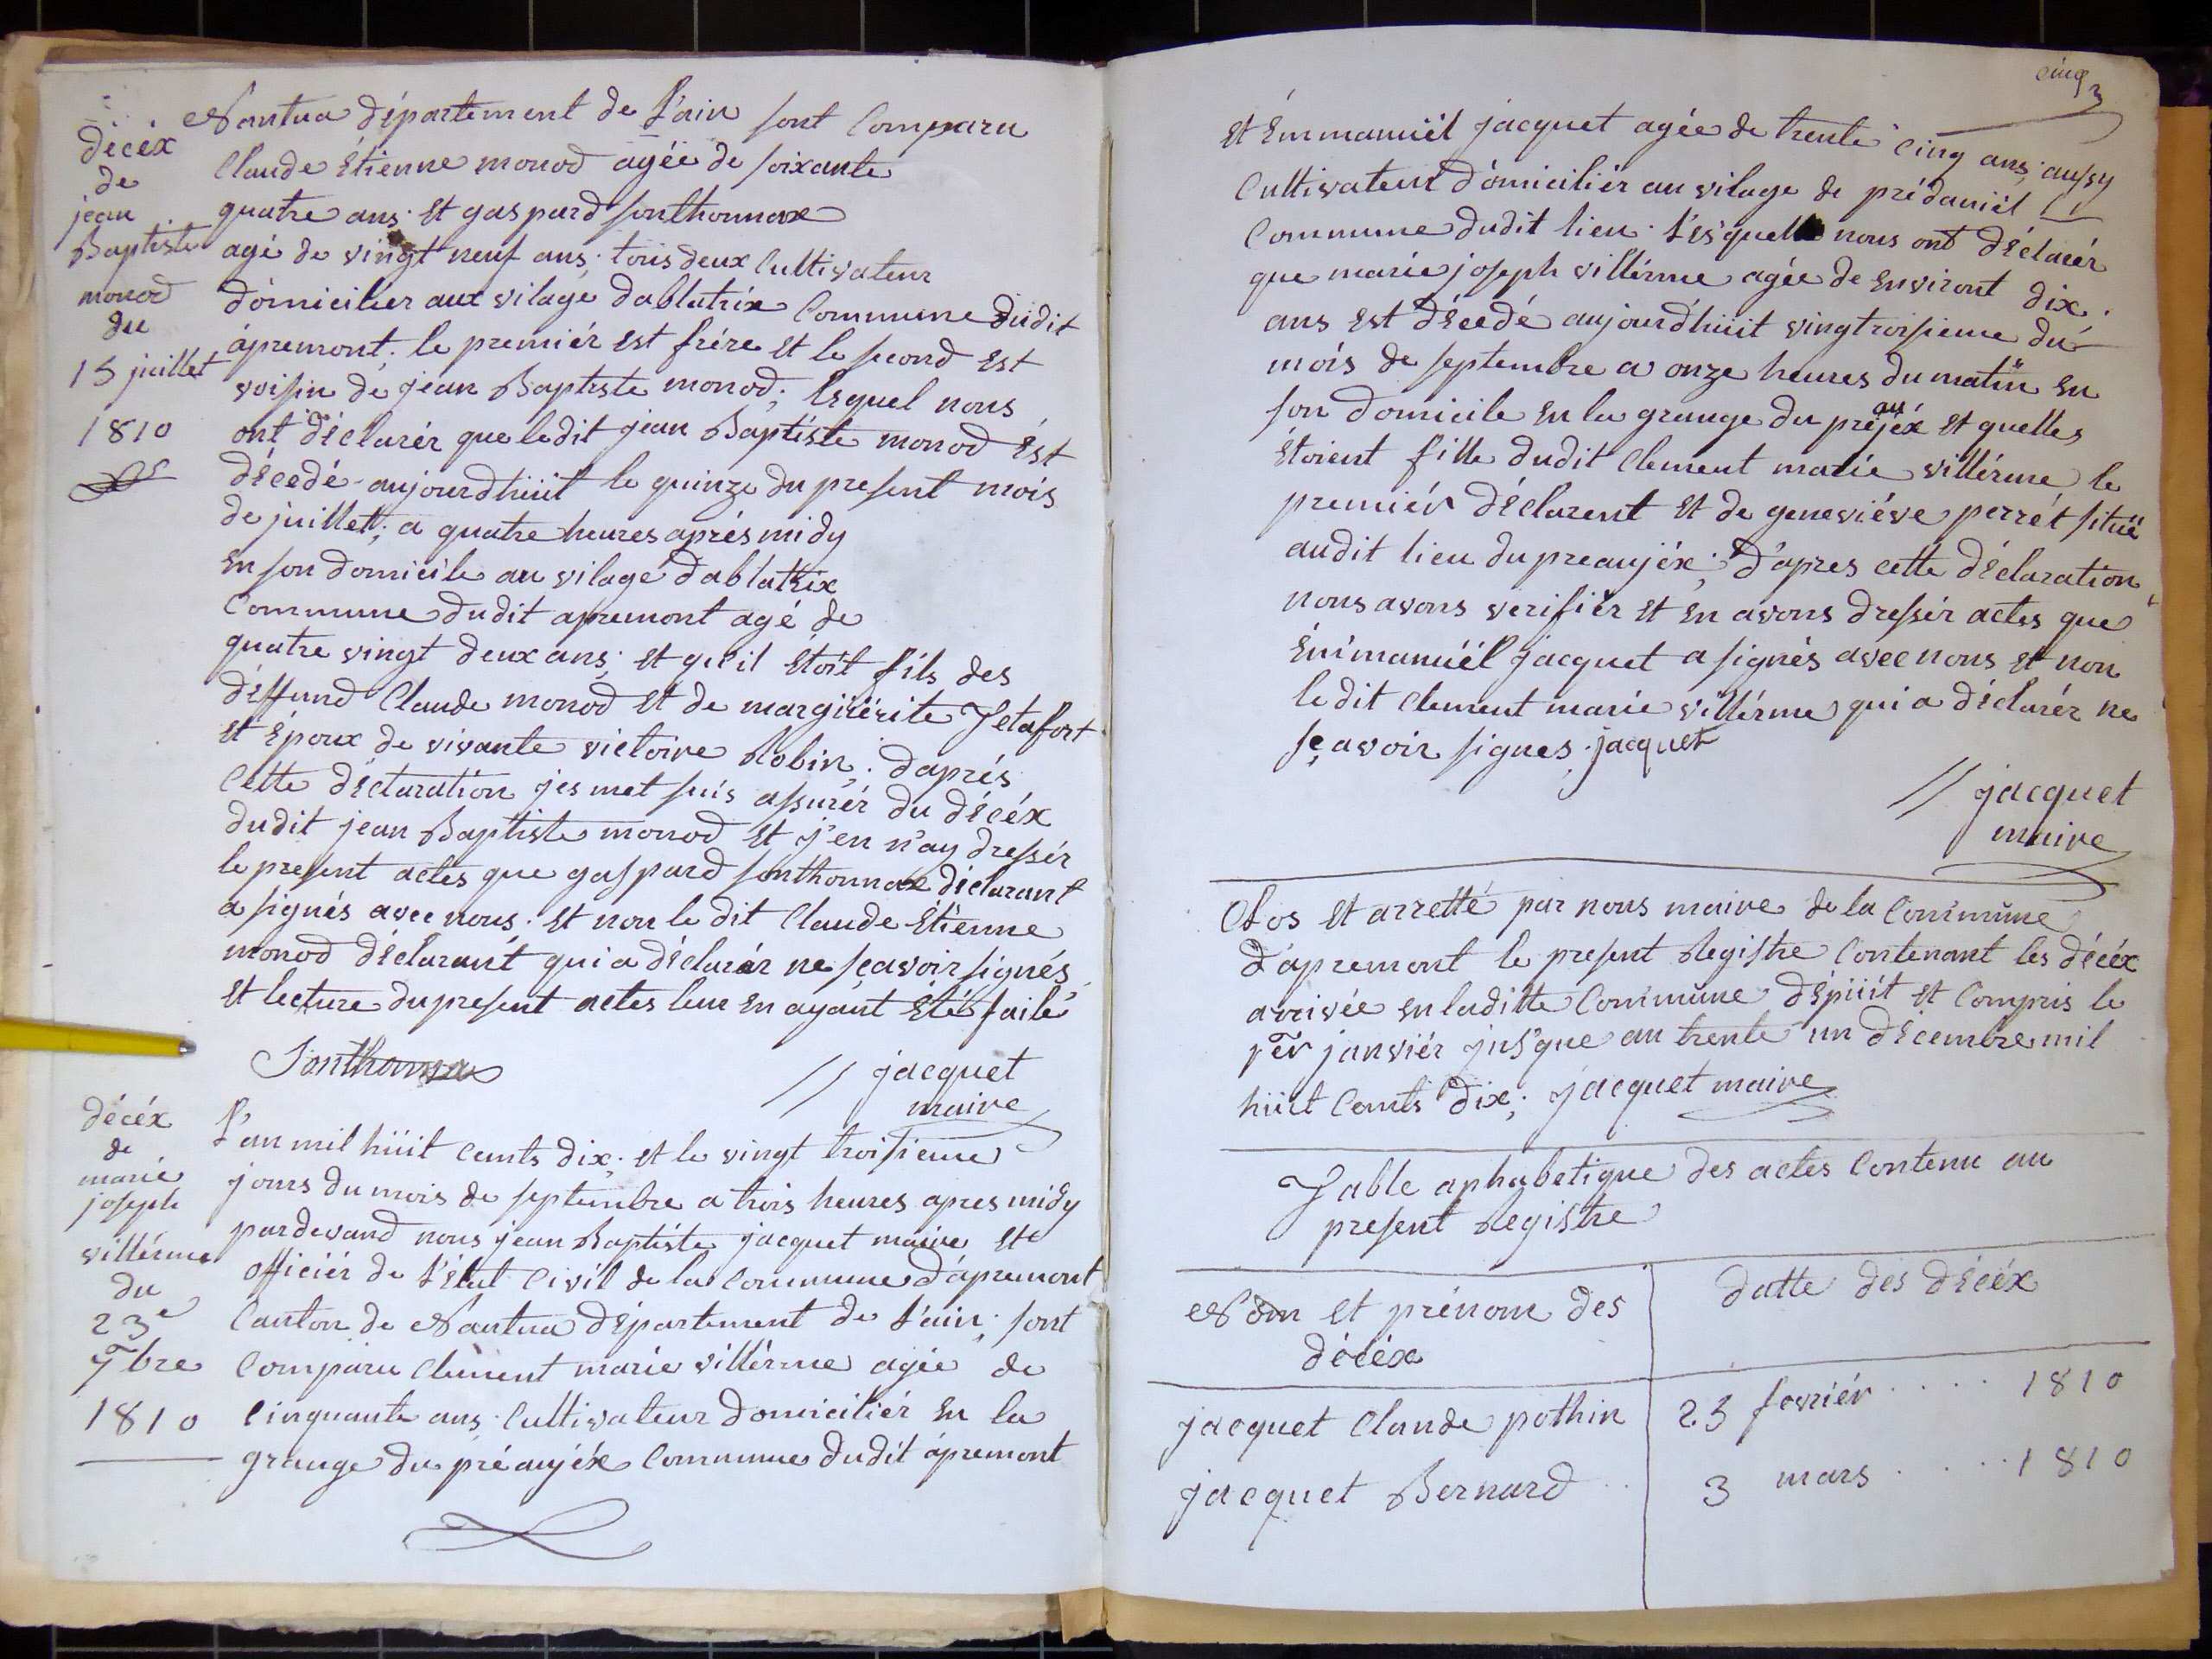 décéx
de
jean
Baptiste
monod
du
15 juillet
1810
Nantua département de L'ain sont Comparu
Claude Étienne monod agée de soixante
quatre ans. Et gaspard sonthonnax
agé de vingt neuf ans; tous deux Cultivateur
domicilier aux vilage dablatrix Commune dudit
apremont; le premiér Est frére Et le second Est
voisin de jean Baptiste monod; lesquel nous
ont déclarér que ledit jean Baptiste monod Ést
décedé aujourdhüit le quinze du present mois
de juillet; a quatre heures aprés midy
En son domicile au vilage dablatrix
Commune dudit apremont agé de
quatre vingt deux ans; Et qu'il Étoit fils des
deffund Claude monod Et de margüérite Jetafort
Et Époux de vivante victoire Robin; daprés
Cette déclaration jes met suis assurér du décéx
dudit jean Baptiste monod Et j'en n'ay dressér
le present actes que gaspard sonthonnax déclarant
a signés avec nous. Et non le dit Claude Étienne
monod déclarant qui a déclarér ne sçavoir signés
Et lecture du present actes leur En ayant Étés faite
Sonthonnax // jacquet
maire
décéx
de
marie
joseph
villérme
du
23e
7bre
1810
L'an mil hüit Cents dix; Et le vingt troisieme
jours du mois de septembre a trois heures apres midy
pardevand nous jean Baptiste jacquet maire Et
officiér de L'Etat Civil de la Commune d'apremont
Canton de Nantua département de L'ain; sont
Comparu Clement marie villérme agée de
Cinquante ans. Cultivateur domiciliér En la
grange du préaujéx Commune dudit apremont
cinq
3
Et Emmanuél jacquet agée de trente Cinq ans; aussy
Cultivateur domiciliér au vilage de prédaniel
Commune dudit lieu. Lesquelle nous ont déclarér
que marie joseph villérme agée de Environt dix
ans Est décedé aujourdhüit vingtroisieme du
mois de septembre a onze heures du matin En
son domicile En la grange du preaujéx Et quelles
Étoient fille dudit Clement marie villérme le
premiér déclarent Et de geneviéve perrét sitüé
audit lieu du preaujéx; D'apres cette déclaration
nous avons verifiér Et En avons dressér actes que
Emmanuél jacquet a signés avec nous Et non
ledit Clement marie villérme qui a déclarér ne
sçavoir signes. jacquet
// jacquet
maire
Clos Et arretté par nous maire de la Commune
d'apremont le present Registre Contenant les décéx
arrivée En laditte Commune dépüit Et Compris le
1er janviér jus'que au trente un décembre mil
hüit Cents dix; jacquet maire
Table aphabetique des actes Contenu au
present Registre
Nom Et prénom des
décéx
datte des décéx
jacquet Claude pothin 23 fevriér . . . . 1810
jacquet Bernard . . 3 mars . . . . 1810